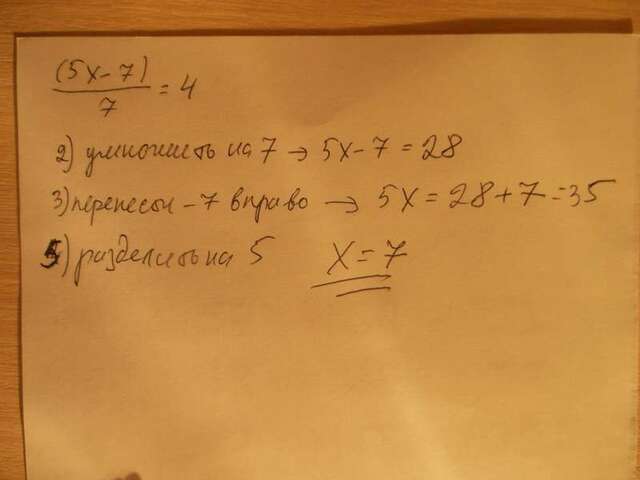 (5x-7)/7 = 4
2) умножить на 7 → 5x-7=28
3) перенести -7 вправо → 5x = 28+7=35
5) разделить на 5 x=7